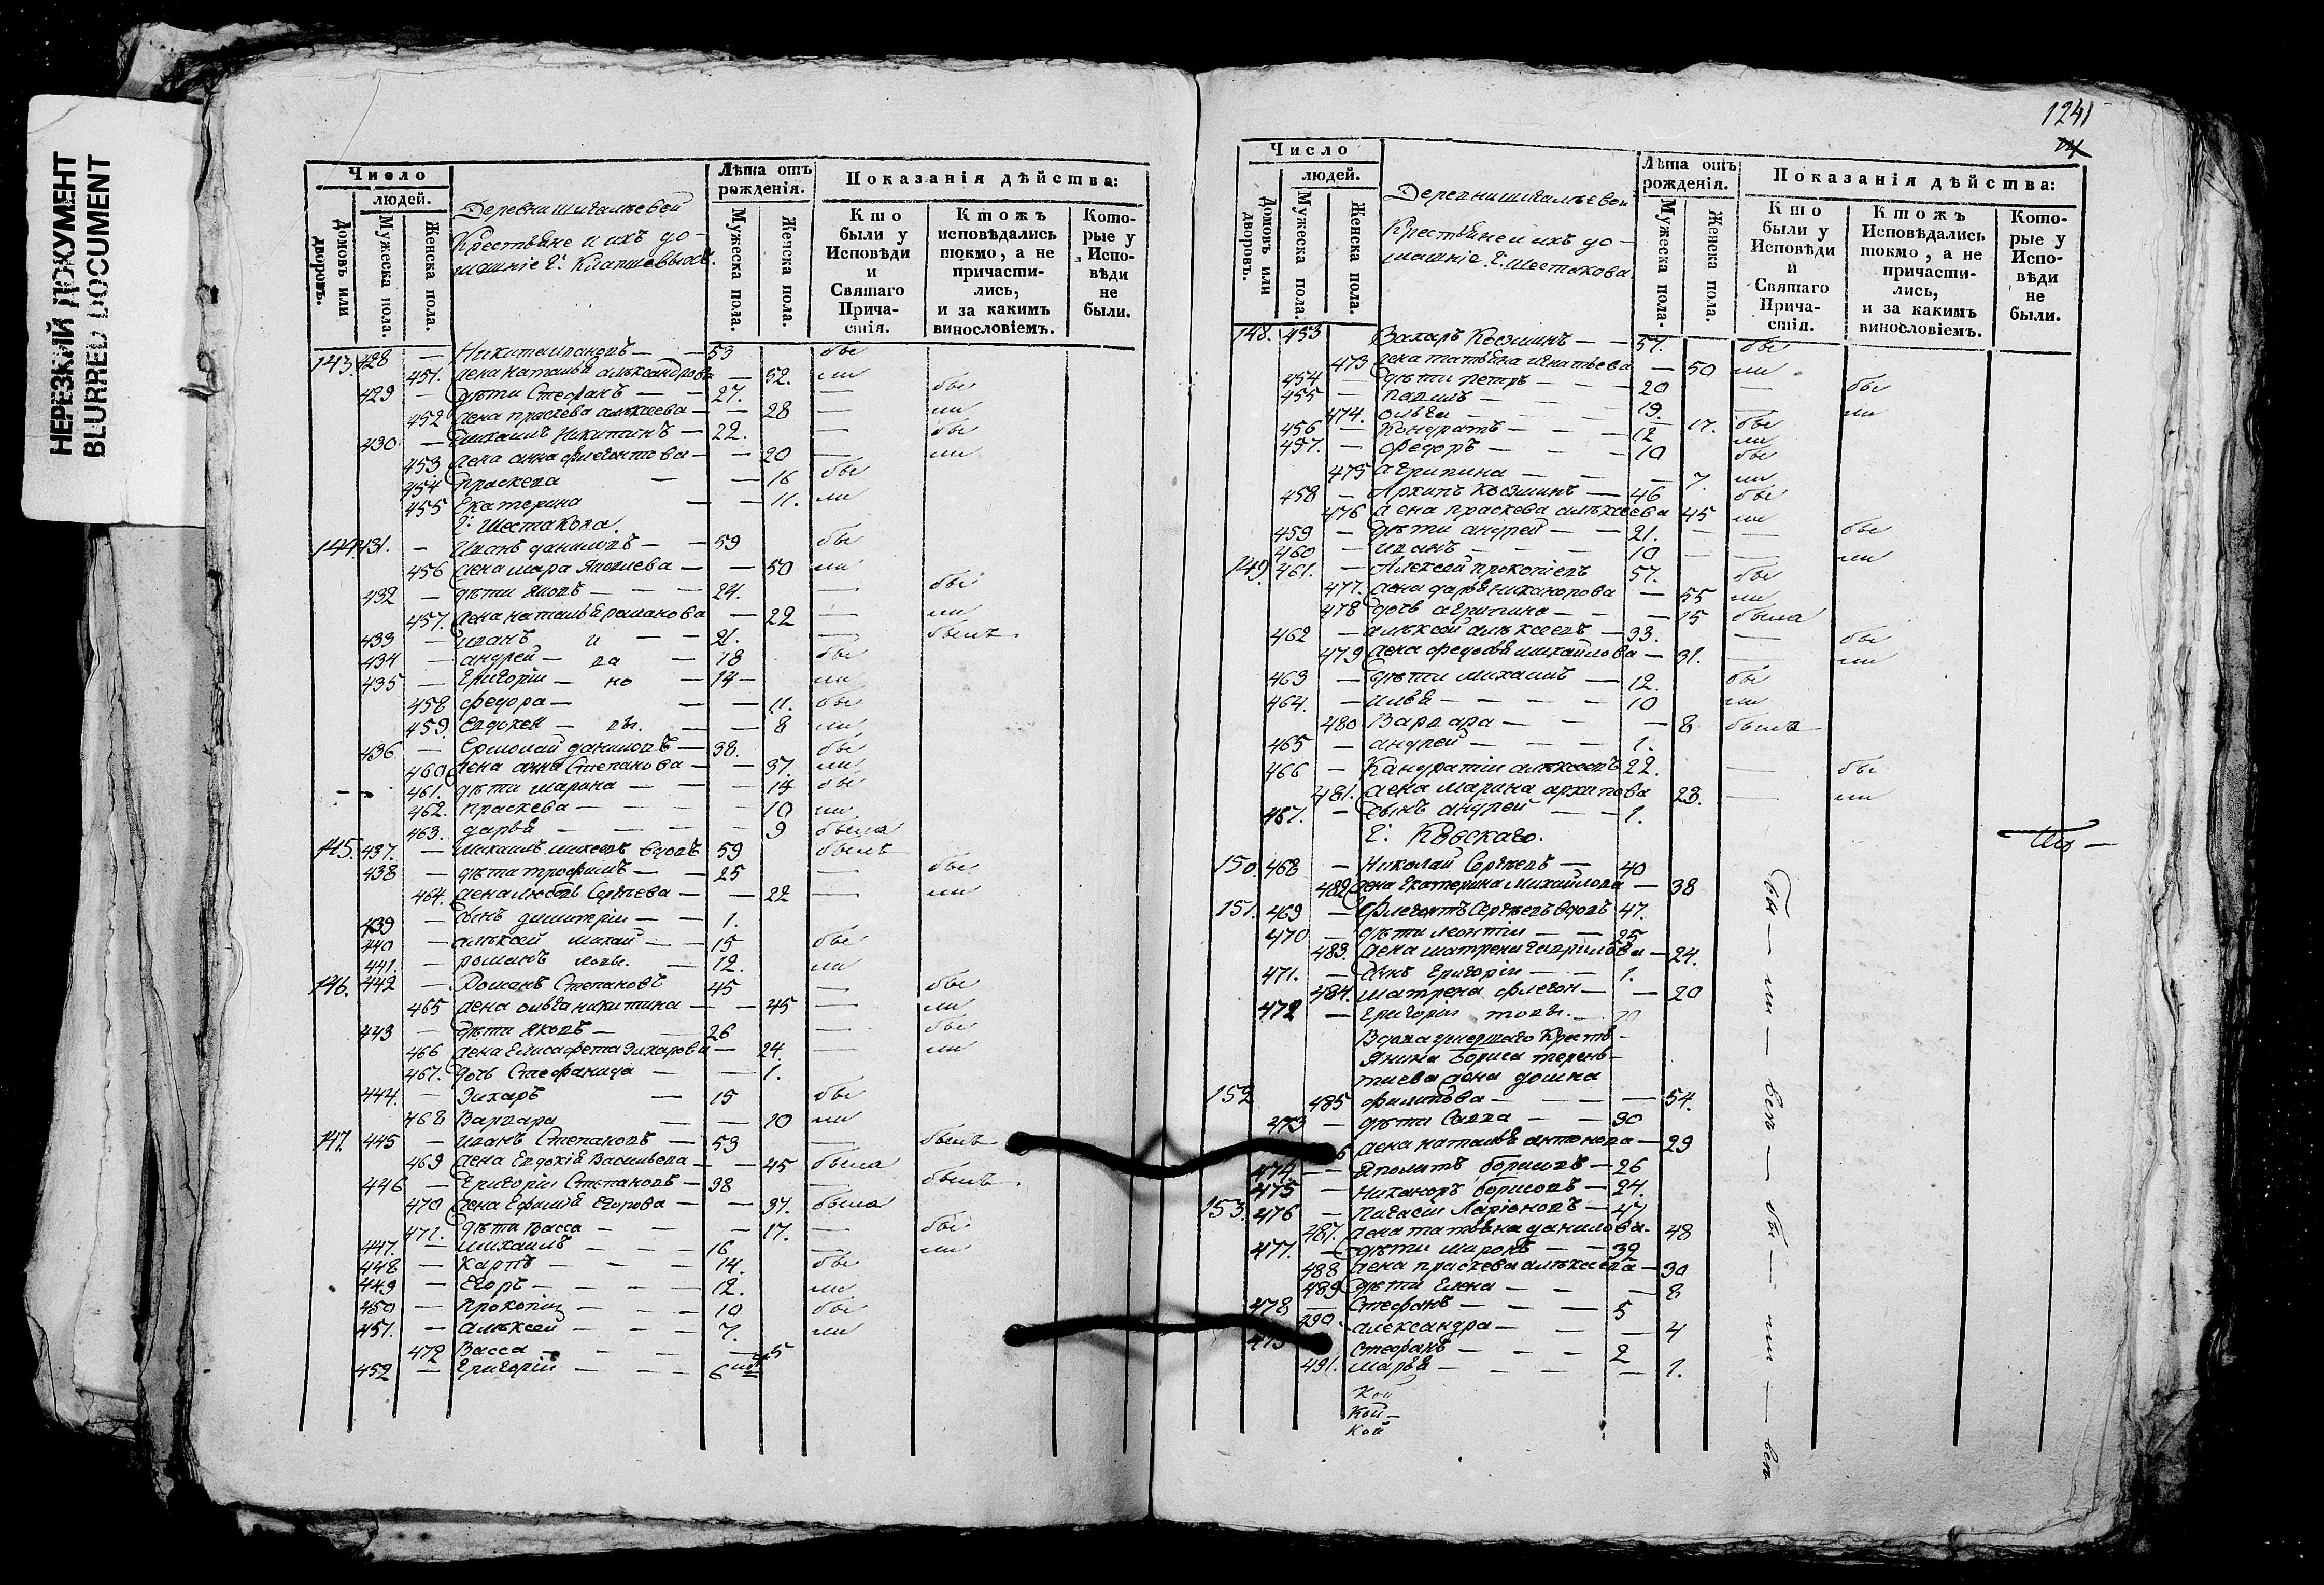 НЕРЕЗКИЙ ДОКУМЕНТ
BLURRED DOCUMENT
Число
людей.
Домовъ или дворовъ.
Мужеска пола.
Женска пола.
Деревни
Крестьяне и ихъ до-
машніе Г:
Лѣта отъ рожденія.
Мужеска пола.
Женска пола.
Показанія дѣйства:
Кто были у Исповѣди и Святаго Причастія.
Ктожъ исповѣдались токмо, а не причастились, и за какимъ винословіемъ.
Которые у Исповѣди не были.
143. 428 — Никита Ивановъ — 53 бы
451. жена Наталья александрова — 52. ли
429 — дѣти Стефанъ — 27. — бы
452 жена праскева алексеева — 28 — ли
430 — Михаилъ Никитинъ — 22. — бы
453 жена анна флегонтова — 20 — ли
454 праскева — 16 бы
455 Екатерина — 11. ли
Г: Шестакова.
144 431. — Иванъ даниловъ — 59 бы
456 жена мара — 50 ли
432 — дѣти яковъ — 24. — бы
457. жена наталья романова — 22 — ли
433 — иванъ и — 21. — былъ
434 — андрей — ва — 18 бы
435 — Григоріи — но — 14 — ли
458 федора — 11. бы
459. евдокея — вы. — 8 ли
436 — Ермолай даниловъ — 38. бы
460 жена анна Степанова — 37. ли
461. дѣти марина — 14 бы
462. праскева — 10 ли
463. дарья — 9 была
145. 437. — Михаилъ вдовъ 59 былъ
438 — дѣти трофимъ — 25 — бы
464. жена любовь Сергѣева — 22 — ли
439 — сынъ димитріи — 1.
440 — алѣксей михай — 15 бы
441. — романъ ловы. — 12. ли
146. 442 — Романъ Степановъ 45 — бы
465 жена ольга никитина — 45 — ли
443 — дѣти яковъ — 26 — бы
466 жена Елисафета Захарова — 24. — ли
467. дочь Стефанида — 1.
444. — Захаръ — 15 бы
468 Варвара — 10 ли
147 445 — иванъ Степановъ — 53 — былъ
469 жена Евдокія Васильева — 45 была
446 — Григоріи Степановъ — 38 — былъ
470 жена Ефимія Егорова — 37. была
471. дѣти Васса — 17. — бы
447. — михаилъ — 16 — ли
448 — Карпъ — 14. бы
449 — Егоръ — 12. ли
450 — прокопіи — 10 бы
451. — алѣксеи — 7. ли
472 Васса — 5
452 — Григоріи — 6
1241
Число
людей.
Домовъ или дворовъ.
Мужеска пола.
Женска пола.
Деревни
Крестьяне и ихъ до-
машніе. Г: Шестакова
Лѣта отъ рожденія.
Мужеска пола.
Женска пола.
Показанія дѣйства:
Кто были у Исповѣди и Святаго Причастія.
Ктожъ Исповѣдались токмо, а не причастились, и за какимъ винословіемъ.
Которые у Исповѣди не были.
148. 453 Захаръ Козминъ — 57. бы
473 жена татьяна игнатьева — 50 ли
454 — дѣти петръ — 20 — бы
455 — павилъ — 19. — ли
474. ольга — 17. бы
456 — Кондратъ — 12 ли
457. — федоръ — 10 бы
475 агрипина — 7. ли
458 — Архипъ Козминъ — 46 бы
476 жена праскева алѣксеева 45 ли
459 — дѣти андрей — 21. — бы
460 — иванъ — 10 — ли
149. 461. — Алексѣй прокопіевъ 57. бы
477. жена дарья никанорова — 55 ли
478 дочь агрипина — 15 была
462 — алѣксѣй алѣксеевъ — 33. — бы
479 жена федосья михайлова — 31. — ли
463 — дѣти михаилъ — 12. бы
464. — илья — 10 ли
480 Варвара — 8 была
465 — андрей — 1.
466 — Кандратіи алѣксеевъ 22. — бы
481. жена марина архипова 23. — ли
467. — сынъ андрей — 1.
Г:
150 468 — Николай Сергѣевъ — 40
482 жена Екатерина Михайлова — 38
151. 469 — Флегонтъ Сергѣевъ вдовъ 47.
470 — дѣти леонтіи — 25
483. жена матрена гаврилова — 24.
471. — сынъ Григоріи — 1.
484. матрена флегон — 20
472 — Григоріи товы. —
Вдова умершаго Кресть-
янина Бориса терень-
тиева жена домна
152 485 филипова — 54.
473 — дѣти Савва — 30
6 жена наталья антонова — 29
474 — Яполитъ борисовъ — 26
475 — никаноръ борисовъ — 24.
153. 476 — Пигасіи Ларіоновъ — 47
487. жена татьяна данилова. 48
477. — дѣти миронъ — 32
488 жена праскева алѣксеева — 30
489 дѣти Елена — 8
478 — Стефанъ — 5
490. александра — 4
479 стефанъ — 2
491. марья — 1.
Кой
Кой —
Кой
бы — ли — вси — бы — ли — вси